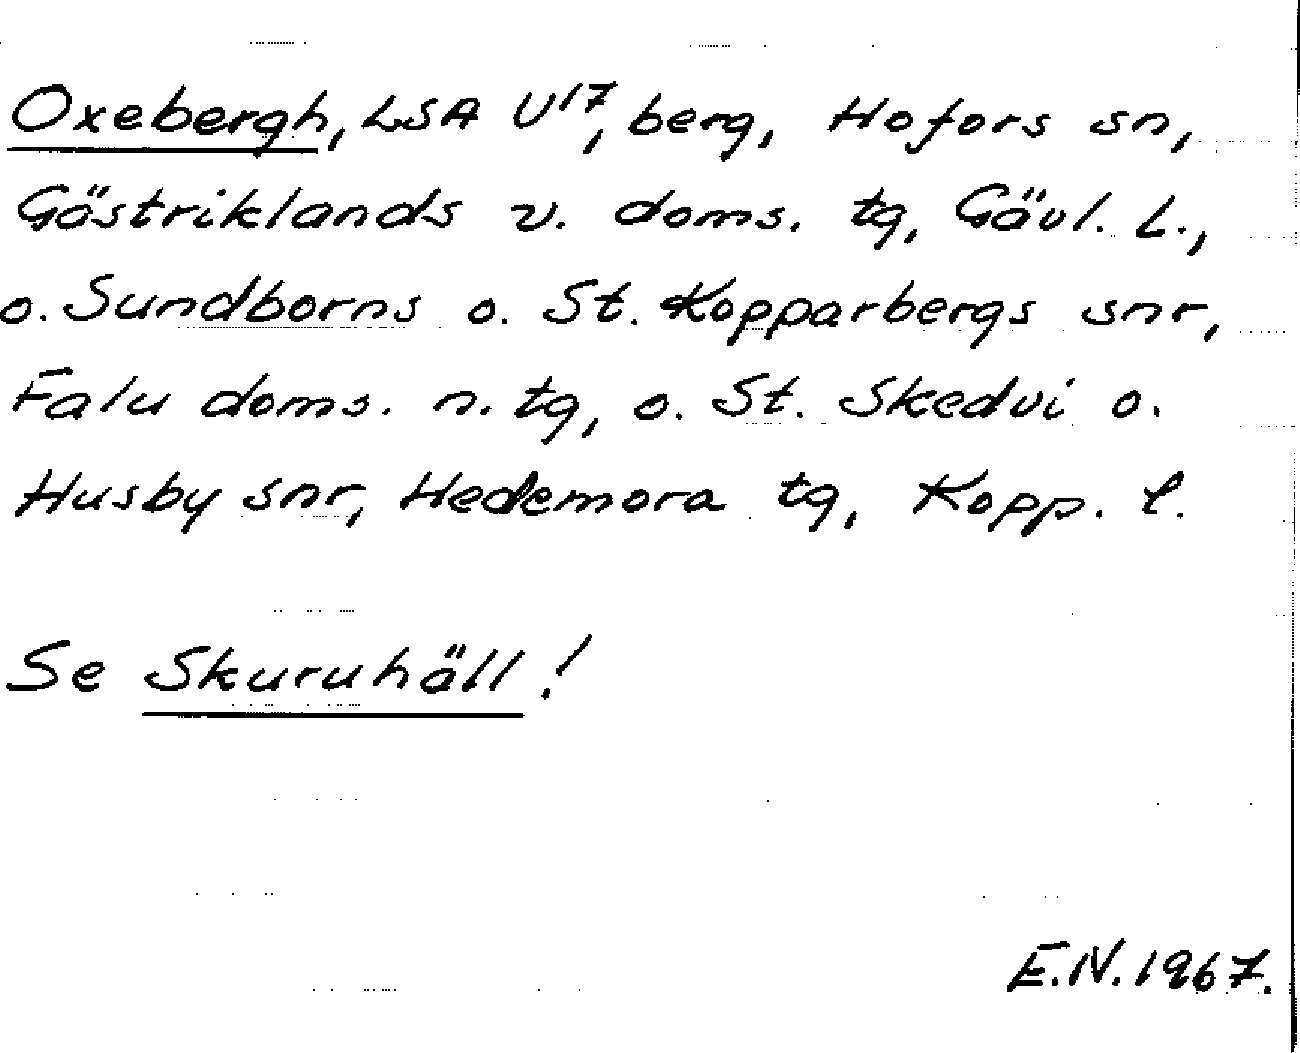 Oxebergh, LSA U17, berg, Hofors sn,
Gästriklands v. doms. tg, Gävl. L.,
o. Sundborns o. St. Kopparbergs snr,
Falu doms. n. tg, o. St. Skedvi o.
Husby snr, Hedemora tg, Kopp. l.
Se Skuruhäll!
E.N. 1967.